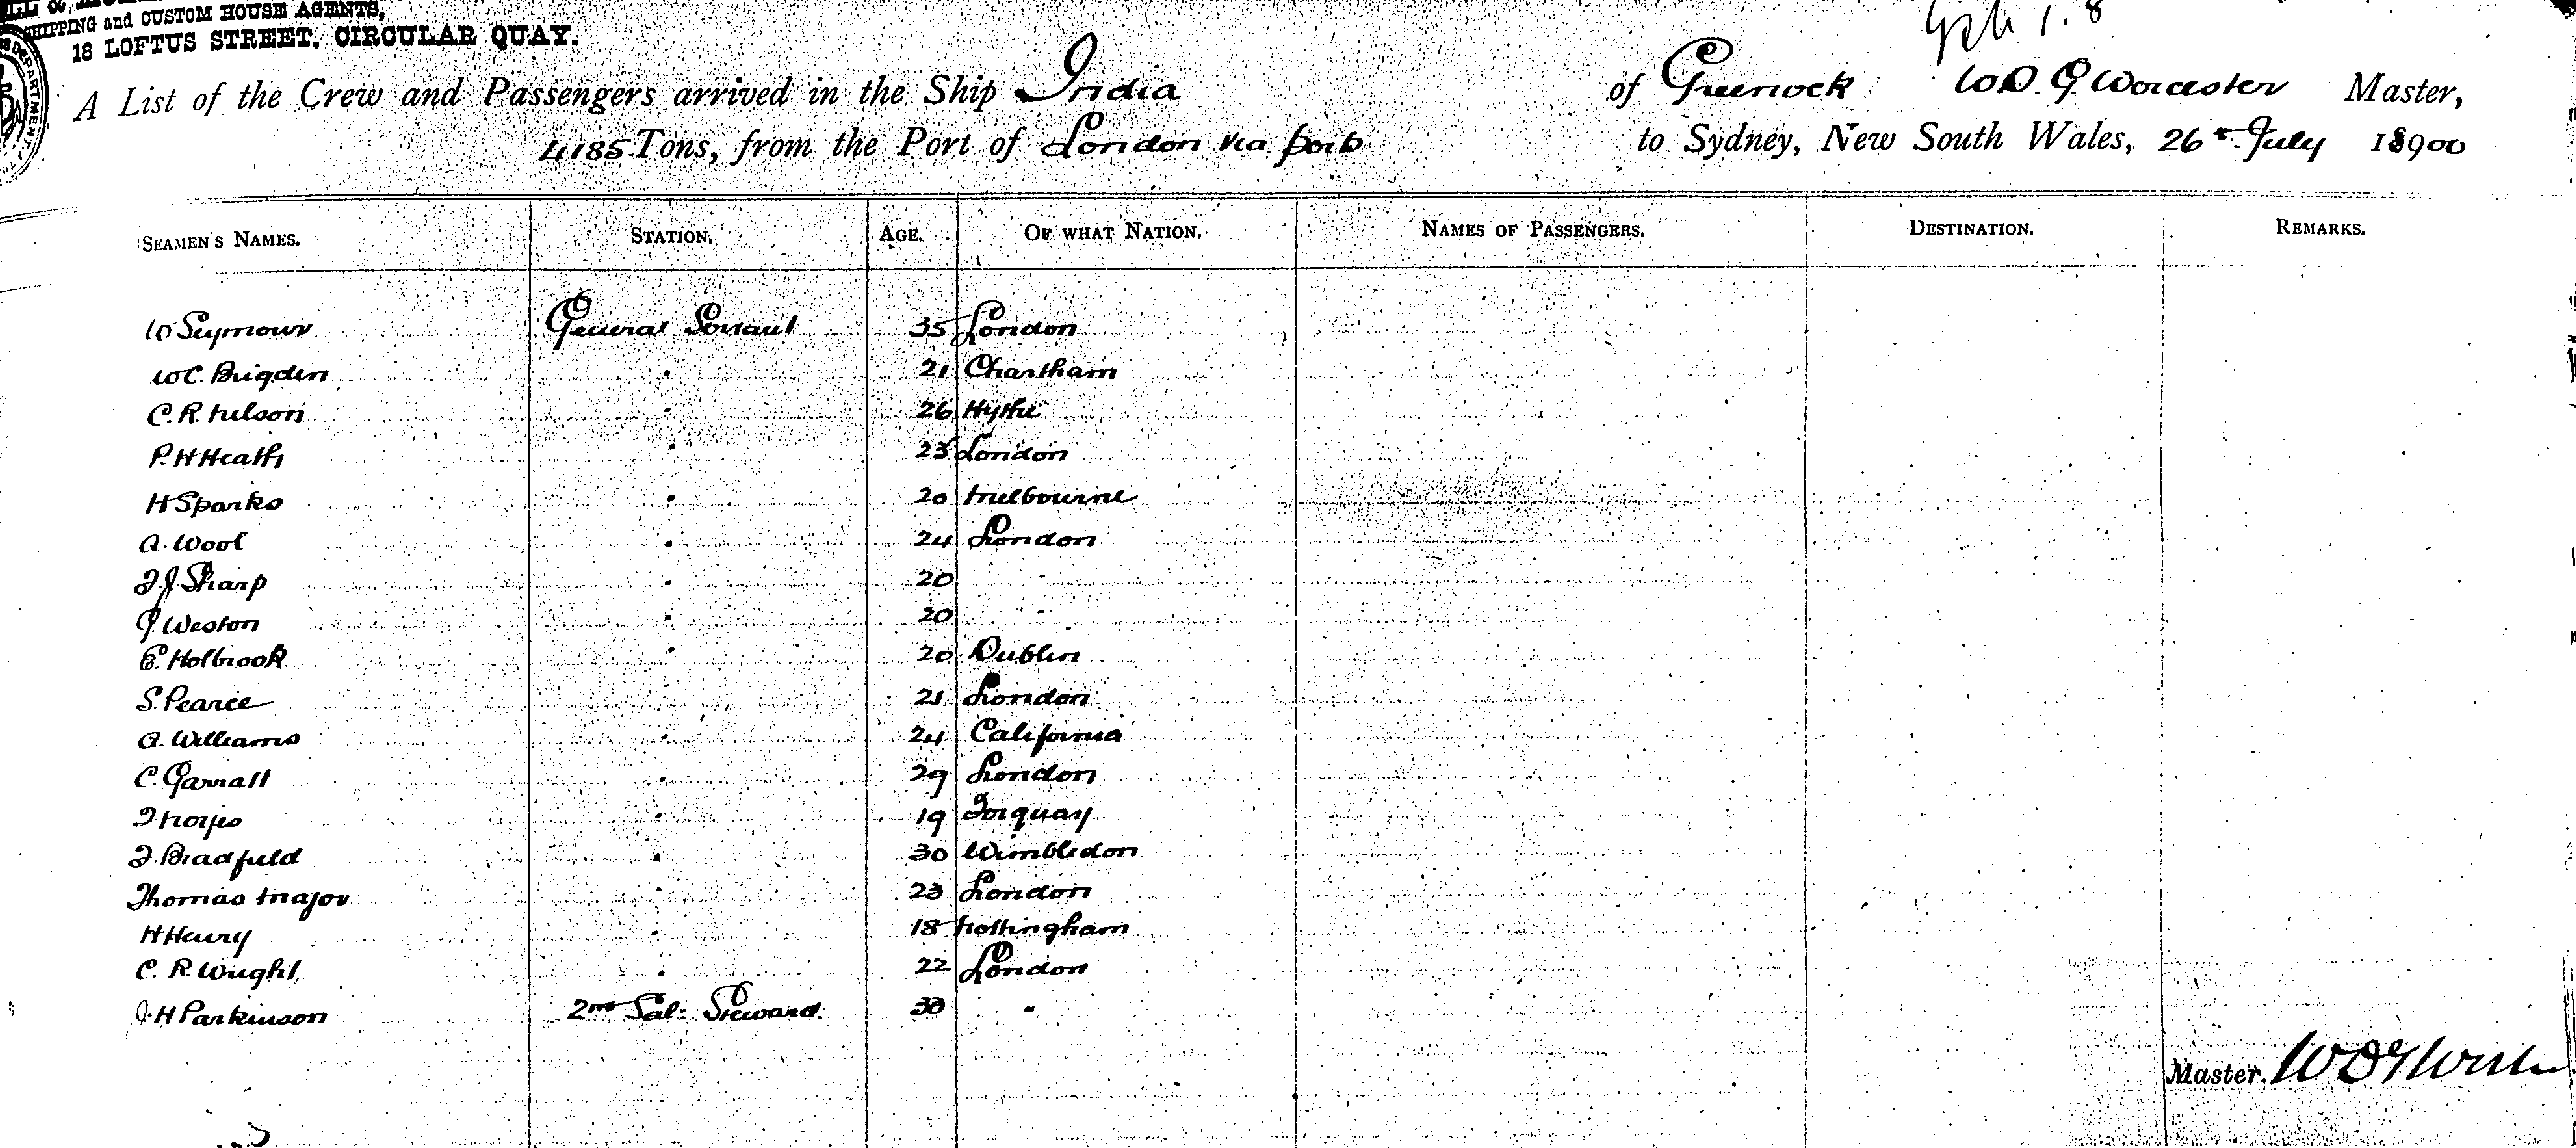 SHIPPING and CUSTOM HOUSE AGENTS,
18 LOFTUS STREET, CIRCULAR QUAY.
A List of the Crew and Passengers arrived in the Ship India of Greenock W.D.G. Worcester Master,
4185 Tons, from the Port of London via ports to Sydney, New South Wales, 26th July 18900
SEAMEN'S NAMES. STATION. AGE. OF WHAT NATION. NAMES OF PASSENGERS. DESTINATION. REMARKS.
W Seymour General Servant 35 London
W C. Brigden " 21 Chartham
C. R. Nelson " 26 Hythe
P. H Heath " 23 London
H Sparks " 20 Melbourne
A. Wool " 24 London
F. J. Sharp " 20 "
G Weston " 20 "
E. Holbrook " 20 Dublin
S. Pearce " 21 London
A. Williams " 24 California
C. Garratt " 29 London
F Noyes " 19 Torquay
F. Bradfield " 30 Wimbledon
Thomas Major " 23 London
H Henry " 18 Nottingham
C. R. Wright " 22 London
J. H Parkinson 2nd Sal. Steward 30 "
Master.